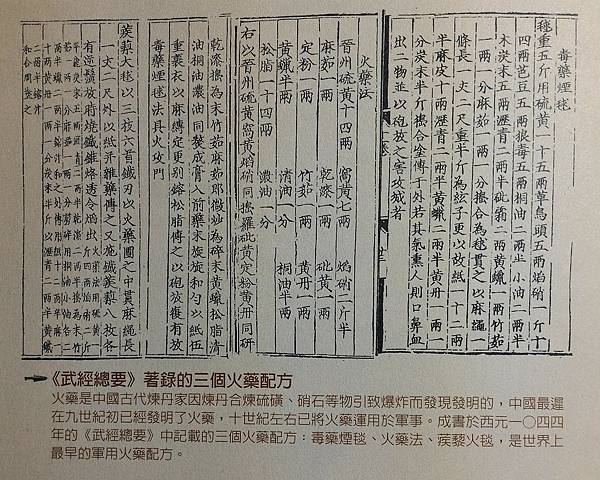 毒藥煙毬
毬重五斤用硫黃一十五兩草烏頭五兩焰硝一斤十
四兩芭豆五兩狼毒五兩桐油二兩半小油二兩半
木炭末五兩瀝青二兩半砒霜二兩黃蠟一兩竹茹
一兩一分麻茹一兩一分搗合為毬貫之以麻繩一
條長一丈二尺重半斤為弦子更以故紙一十二兩
半麻皮十兩瀝青二兩半黃蠟二兩半黃丹一兩一
分炭末半斤搗合塗傅于外若其氣熏人則口鼻血
出二物並以砲放之害攻城者
火藥法
晉州硫黃十四兩 窩黃七兩 焰硝二斤半
麻茹一兩 乾漆一兩 砒黃一兩
定粉一兩 竹茹一兩 黃丹一兩
黃蠟半兩 清油一分 桐油半兩
松脂一十四兩 濃油一分
右以晉州硫黃窩黃焰硝同搗羅砒黃定粉黃丹同研
乾漆搗為末竹茹麻茹即微炒為碎末黃蠟松脂清
油桐油濃油同熬成膏入前藥末旋旋和勻以紙伍
重裹衣以麻縛定更別鎔松脂傅之以砲放復有放
毒藥煙毬法具火攻門
蒺藜火毬以三枝六首鐵刃以火藥團之中貫麻繩長
一丈二尺外以紙并雜藥傅之又施鐵蒺藜八枚各
有逆鬚放時燒鐵錐烙透令焰出
火藥法用硫黃一
斤四兩焰硝二斤
半麤炭末五兩瀝青二兩半乾漆二兩半搗為末竹
茹一兩一分麻茹一兩一分剪碎用桐油小油各二
兩半蠟二兩半鎔汁和之外傅用紙十二兩半麻一
十兩黃丹一兩一分炭末半斤以瀝青二兩半黃蠟
二兩半鎔汁
和合周塗之
《武經總要》著錄的三個火藥配方
火藥是中國古代煉丹家因煉丹合煉硫磺、硝石等物引致爆炸而發現發明的，中國最遲
在九世紀初已經發明了火藥，十世紀左右已將火藥運用於軍事。成書於西元一〇四四
年的《武經總要》中記載的三個火藥配方：毒藥煙毬、火藥法、蒺藜火毬，是世界上
最早的軍用火藥配方。